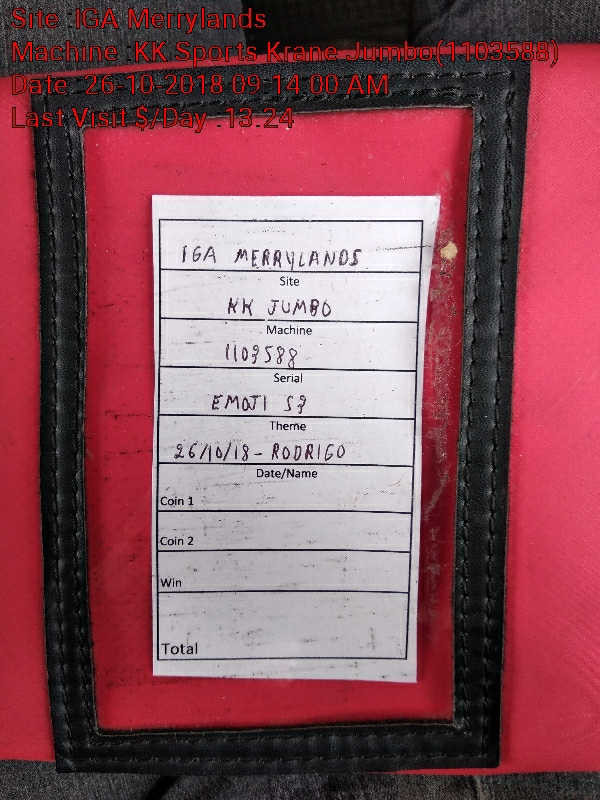 Site :IGA Merrylands
Machine :KK Sports Krane Jumbo(1103588)
Date :26-10-2018 09:14:00 AM
Last Visit $/Day :13.24
IGA MERRYLANDS
Site
KK JUMBO
Machine
1103588
Serial
EMOJI S3
Theme
26/10/18 - RODRIGO
Date/Name
Coin 1
Coin 2
Win
Total